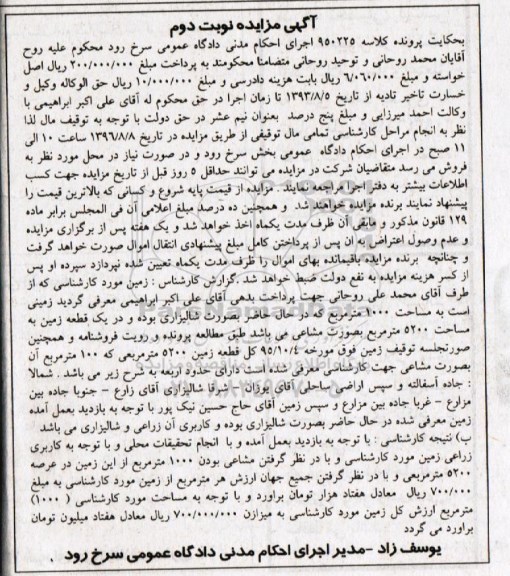 آگهی مزایده نوبت دوم
بحکایت پرونده کلاسه ۹۵۰۲۲۵ اجرای احکام مدنی دادگاه عمومی سرخ رود محکوم علیه روح
آقایان محمد روحانی و توحید روحانی متضامنا محکومند به پرداخت مبلغ ۲۰۰/۰۰۰/۰۰۰ ریال اصل
خواسته و مبلغ ۶/۰۶۰/۰۰۰ ریال بابت هزینه دادرسی و مبلغ ۱۰/۰۰۰/۰۰۰ ریال حق الوکاله وکیل و
خسارت تاخیر تادیه از تاریخ ۱۳۹۳/۸/۵ تا زمان اجرا در حق محکوم له آقای علی اکبر ابراهیمی با
وکالت احمد میرزایی و مبلغ پنج درصد بعنوان نیم عشر در حق دولت با توجه به توقیف مال لذا
نظر به انجام مراحل کارشناسی تمامی مال توقیفی از طریق مزایده در تاریخ ۱۳۹۶/۸/۸ ساعت ۱۰ الی
۱۱ صبح در اجرای احکام دادگاه عمومی بخش سرخ رود و در صورت نیاز در محل مورد نظر به
فروش می رسد متقاضیان شرکت در مزایده می توانند حداقل ۵ روز قبل از تاریخ مزایده جهت کسب
اطلاعات بیشتر به دفتر اجرا مراجعه نمایند . مزایده از قیمت پایه شروع و کسانی که بالاترین قیمت را
پیشنهاد نمایند برنده مزایده خواهند شد و همچنین ده درصد مبلغ اعلامی آن فی المجلس برابر ماده
۱۲۹ قانون مذکور و مابقی آن ظرف مدت یکماه اخذ خواهد شد و یک هفته پس از برگزاری مزایده
و عدم وصول اعتراض به آن پس از پرداختن کامل مبلغ پیشنهادی انتقال اموال صورت خواهد گرفت
و چنانچه برنده مزایده باقیمانده بهای اموال را ظرف مدت یکماه تعیین شده نپردازد سپرده او پس
از کسر هزینه مزایده به نفع دولت ضبط خواهد شد .گزارش کارشناس : زمین مورد کارشناسی که از
طرف آقای محمد علی روحانی جهت پرداخت بدهی آقای علی اکبر ابراهیمی معرفی گردید زمینی
است به مساحت ۱۰۰۰ مترمربع که در حال حاضر بصورت شالیزاری بوده و در یک قطعه زمین به
مساحت ۵۲۰۰ مترمربع بصورت مشاعی می باشد طبق مطالعه پرونده و رویت فروشنامه و همچنین
صورتجلسه توقیف زمین فوق مورخه ۹۵/۱۰/۴ کل قطعه زمین ۵۲۰۰ مترمربعی که ۱۰۰ مترمربع آن
بصورت مشاعی جهت کارشناسی معرفی شده است دارای حدود اربعه به شرح زیر می باشد . شمالا
: جاده آسفالته و سپس اراضی ساحلی آقای یوزان – شرقا شالیزاری آقای زارع – جنوبا جاده بین
مزارع – غربا جاده بین مزارع و سپس زمین آقای حاج حسین نیک پور با توجه به بازدید بعمل آمده
زمین معرفی شده در حال حاضر بصورت شالیزاری بوده و کاربری آن زراعی و شالیزاری می باشد
ب) نتیجه کارشناسی : با توجه به بازدید بعمل آمده و با انجام تحقیقات محلی و با توجه به کاربری
زراعی زمین مورد کارشناسی و با در نظر گرفتن مشاعی بودن ۱۰۰۰ مترمربع از این زمین در عرصه
۵۲۰۰ مترمربعی و با در نظر گرفتن جمیع جهان ارزش هر مترمربع از زمین مورد کارشناسی به مبلغ
۷۰۰/۰۰۰ ریال معادل هفتاد هزار تومان براورد و با توجه به مساحت مورد کارشناسی ( ۱۰۰۰)
مترمربع ارزش کل زمین مورد کارشناسی به میزان ۷۰۰/۰۰۰/۰۰۰ ریال معادل هفتاد میلیون تومان
براورد می گردد
یوسف زاد –مدیر اجرای احکام مدنی دادگاه عمومی سرخ رود .